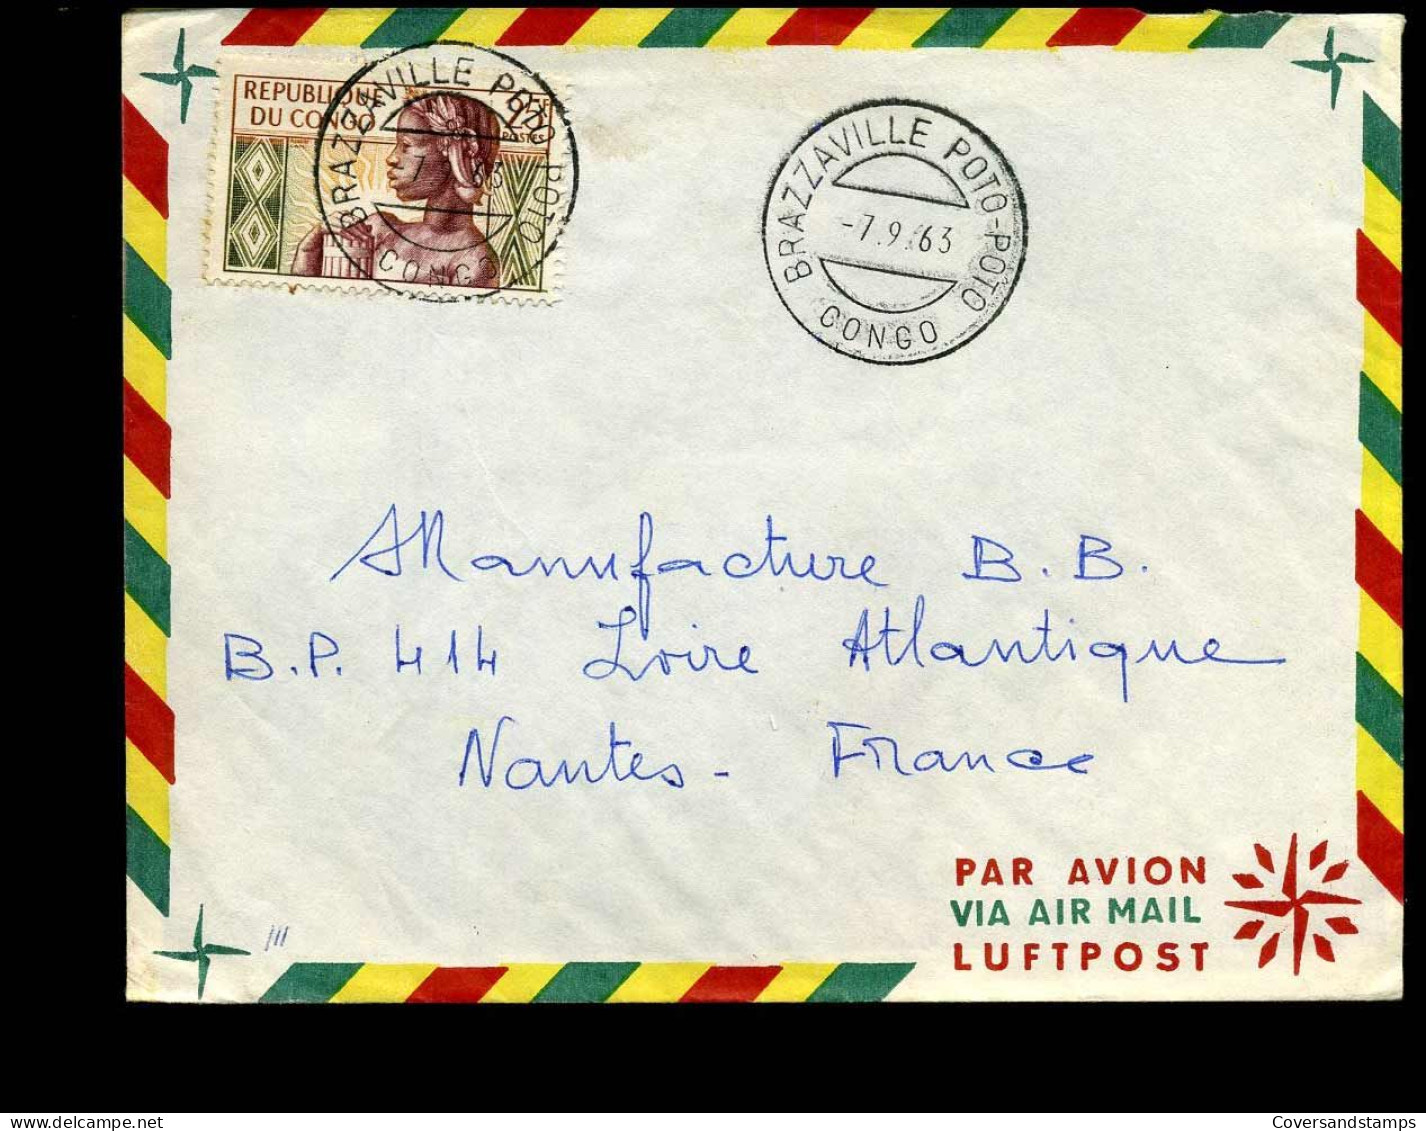 REPUBLIQUE
DU CONGO
25F
POSTES
BRAZZAVILLE POTO-POTO
CONGO
BRAZZAVILLE POTO-POTO
-7.9.63
CONGO
Manufacture B.B.
B.P. 414 Loire Atlantique
Nantes - France
PAR AVION
VIA AIR MAIL
LUFTPOST
Coversandstamps.com